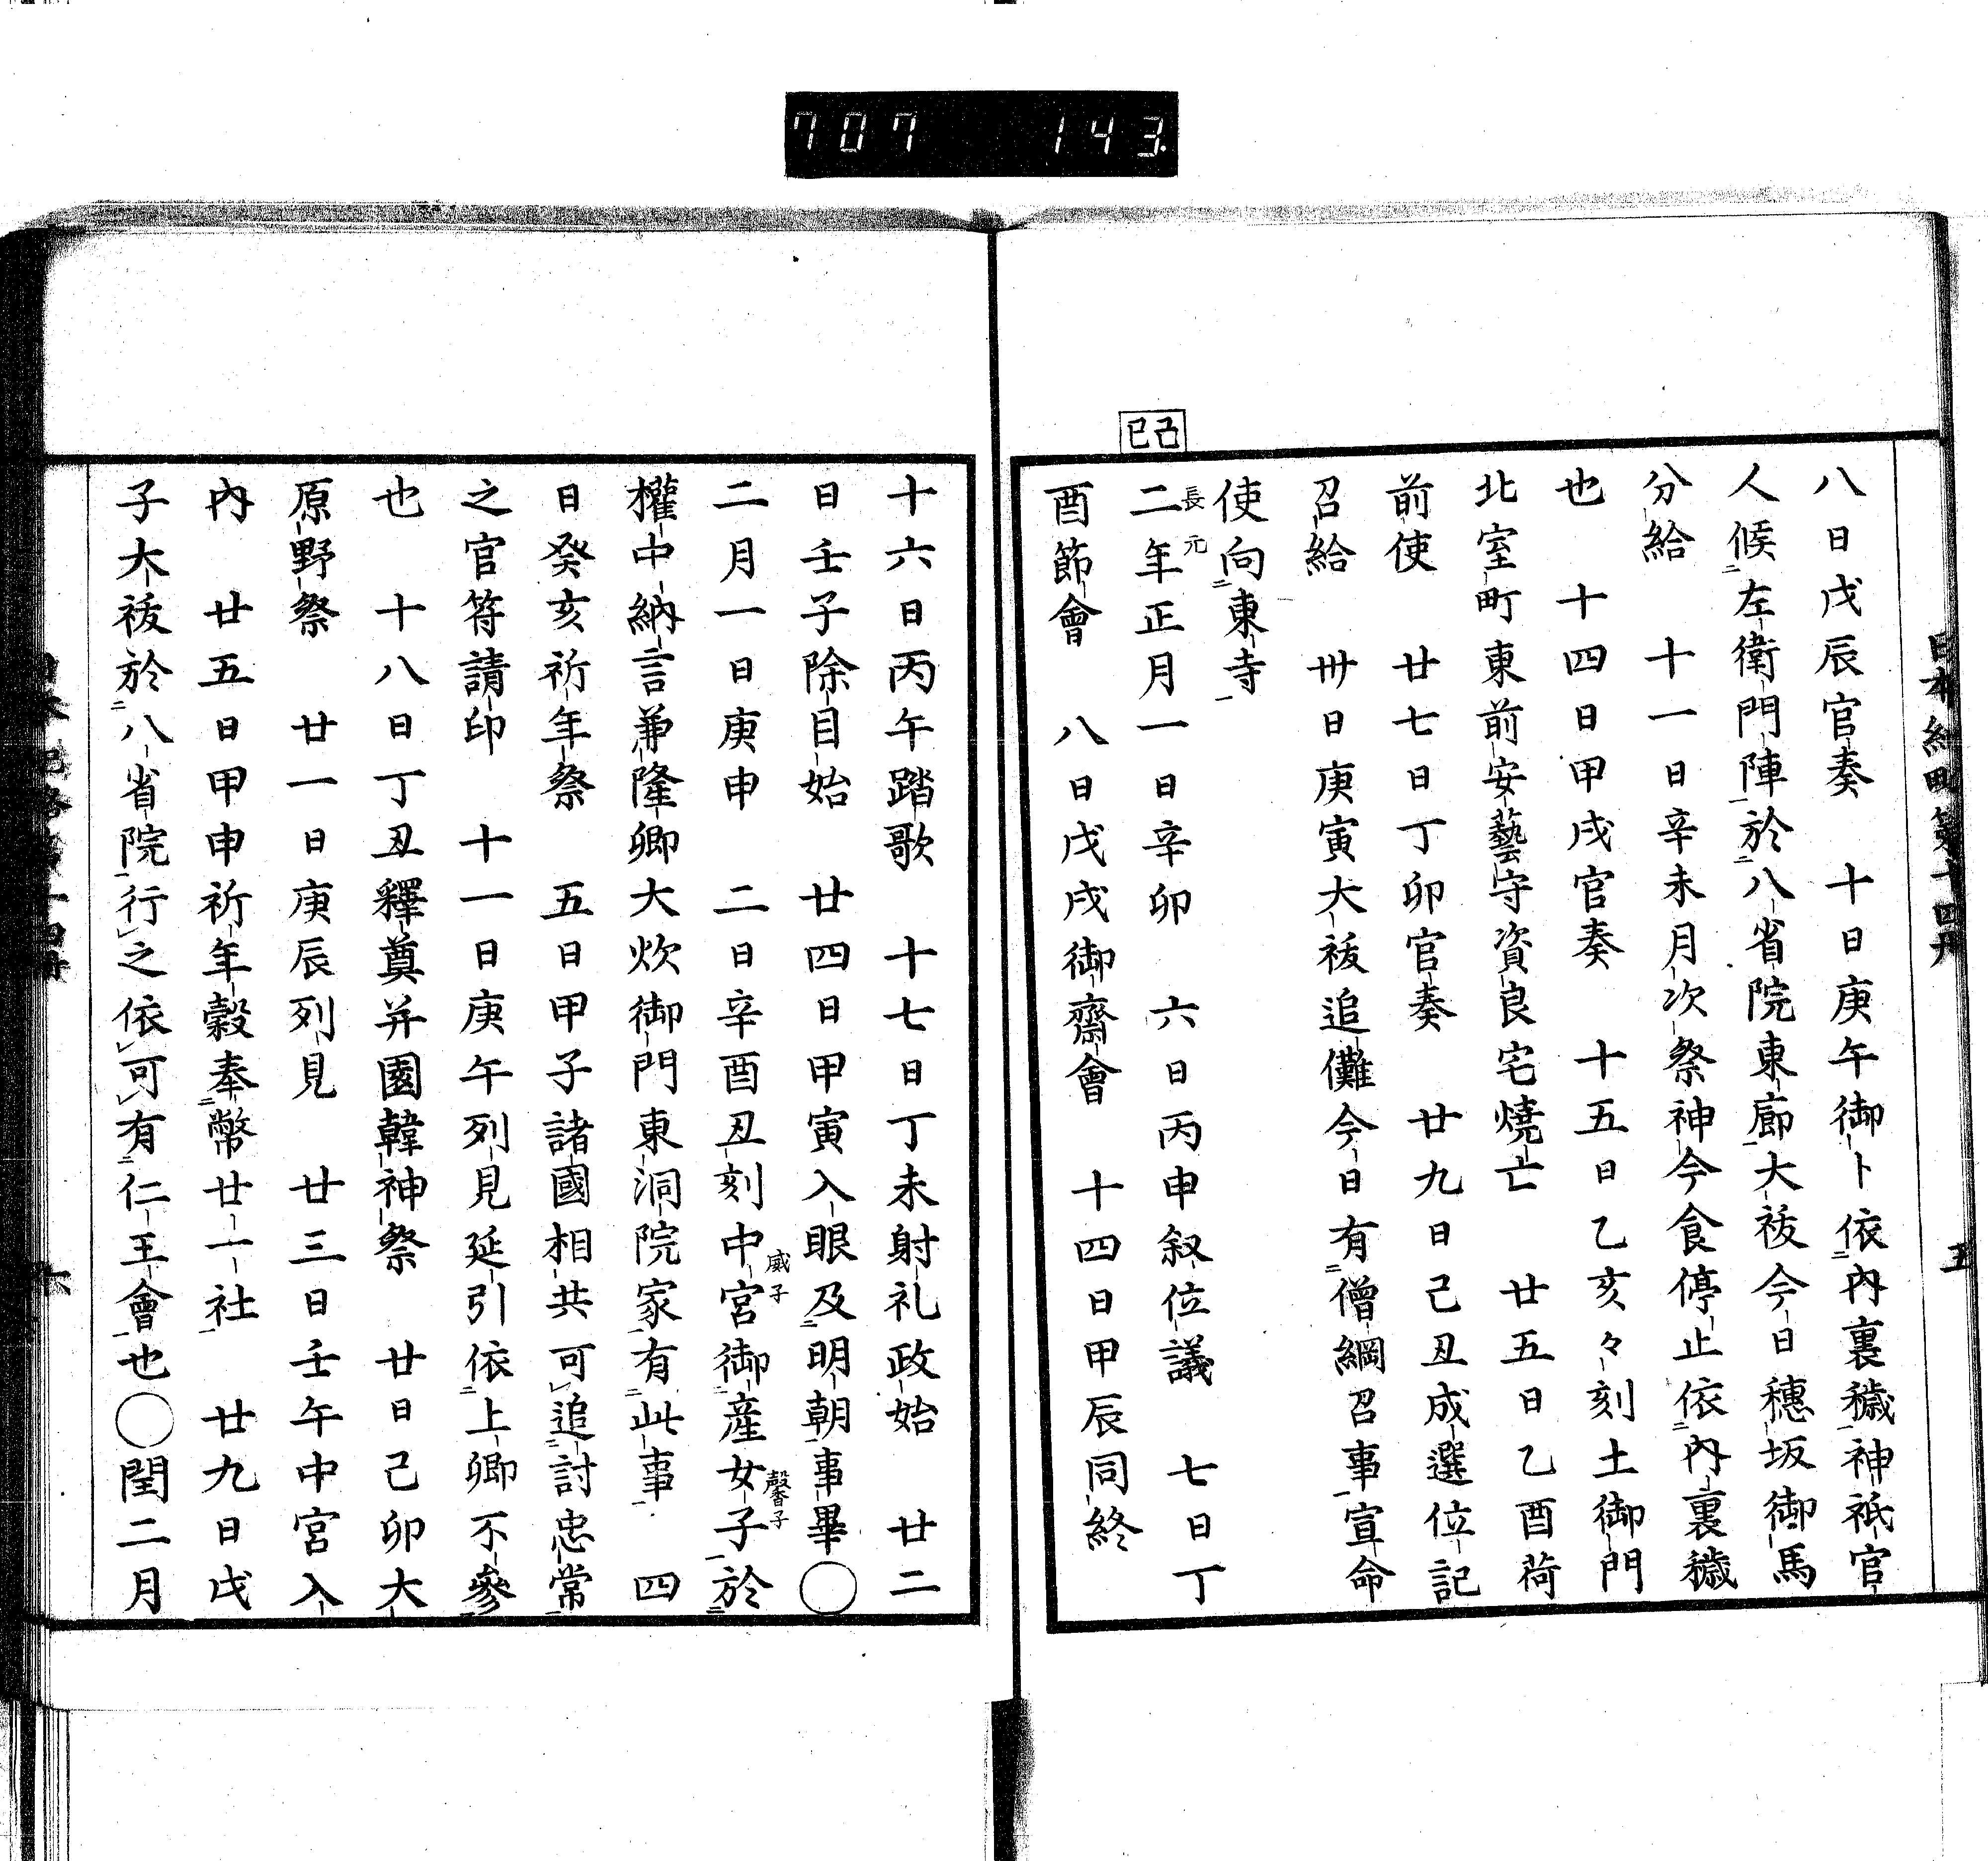 707 143.
日本紀略第十四冊 五
八日戊辰官奏　十日庚午御卜依内裏穢神祇官
人候左衛門陣於八省院東廊大祓今日穗坂御馬
分給　十一日辛未月次祭神今食停止依内裏穢
也　十四日甲戌官奏　十五日乙亥々刻土御門
北室町東前安藝守資良宅燒亡　廿五日乙酉荷
前使　廿七日丁卯官奏　廿九日己丑成選位記
召給　卅日庚寅大祓追儺今日有僧綱召事宣命
使向東寺
己巳
長元
二年正月一日辛卯　六日丙申叙位議　七日丁
酉節會　八日戊戌御齋會　十四日甲辰同終
十六日丙午踏歌　十七日丁未射礼政始　廿二
日壬子除目始　廿四日甲寅入眼及明朝事畢〇
二月一日庚申　二日辛酉丑刻中宮御産女子於
威子
馨子
權中納言兼隆卿大炊御門東洞院家有此事　四
日癸亥祈年祭　五日甲子諸國相共可追討忠常
之官符請印　十一日庚午列見延引依上卿不參
也　十八日丁丑釋奠并園韓神祭　廿日己卯大
原野祭　廿一日庚辰列見　廿三日壬午中宮入
内　廿五日甲申祈年穀奉幣廿一社　廿九日戊
子大祓於八省院行之依可有仁王會也〇閏二月
六